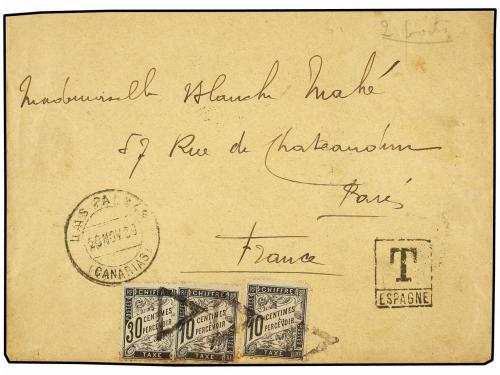 2 ports
Mademoiselle Blanche Mahé
57 Rue de Chateaudun
Paris
France
PALMAS
20 NOV
(CANARIAS)
T
ESPAGNE
CHIFFRE
30
CENTIMES
À
PERCEVOIR
TAXE
CHIFFRE
10
CENTIMES
À
PERCEVOIR
TAXE
CHIFFRE
10
CENTIMES
À
PERCEVOIR
TAXE